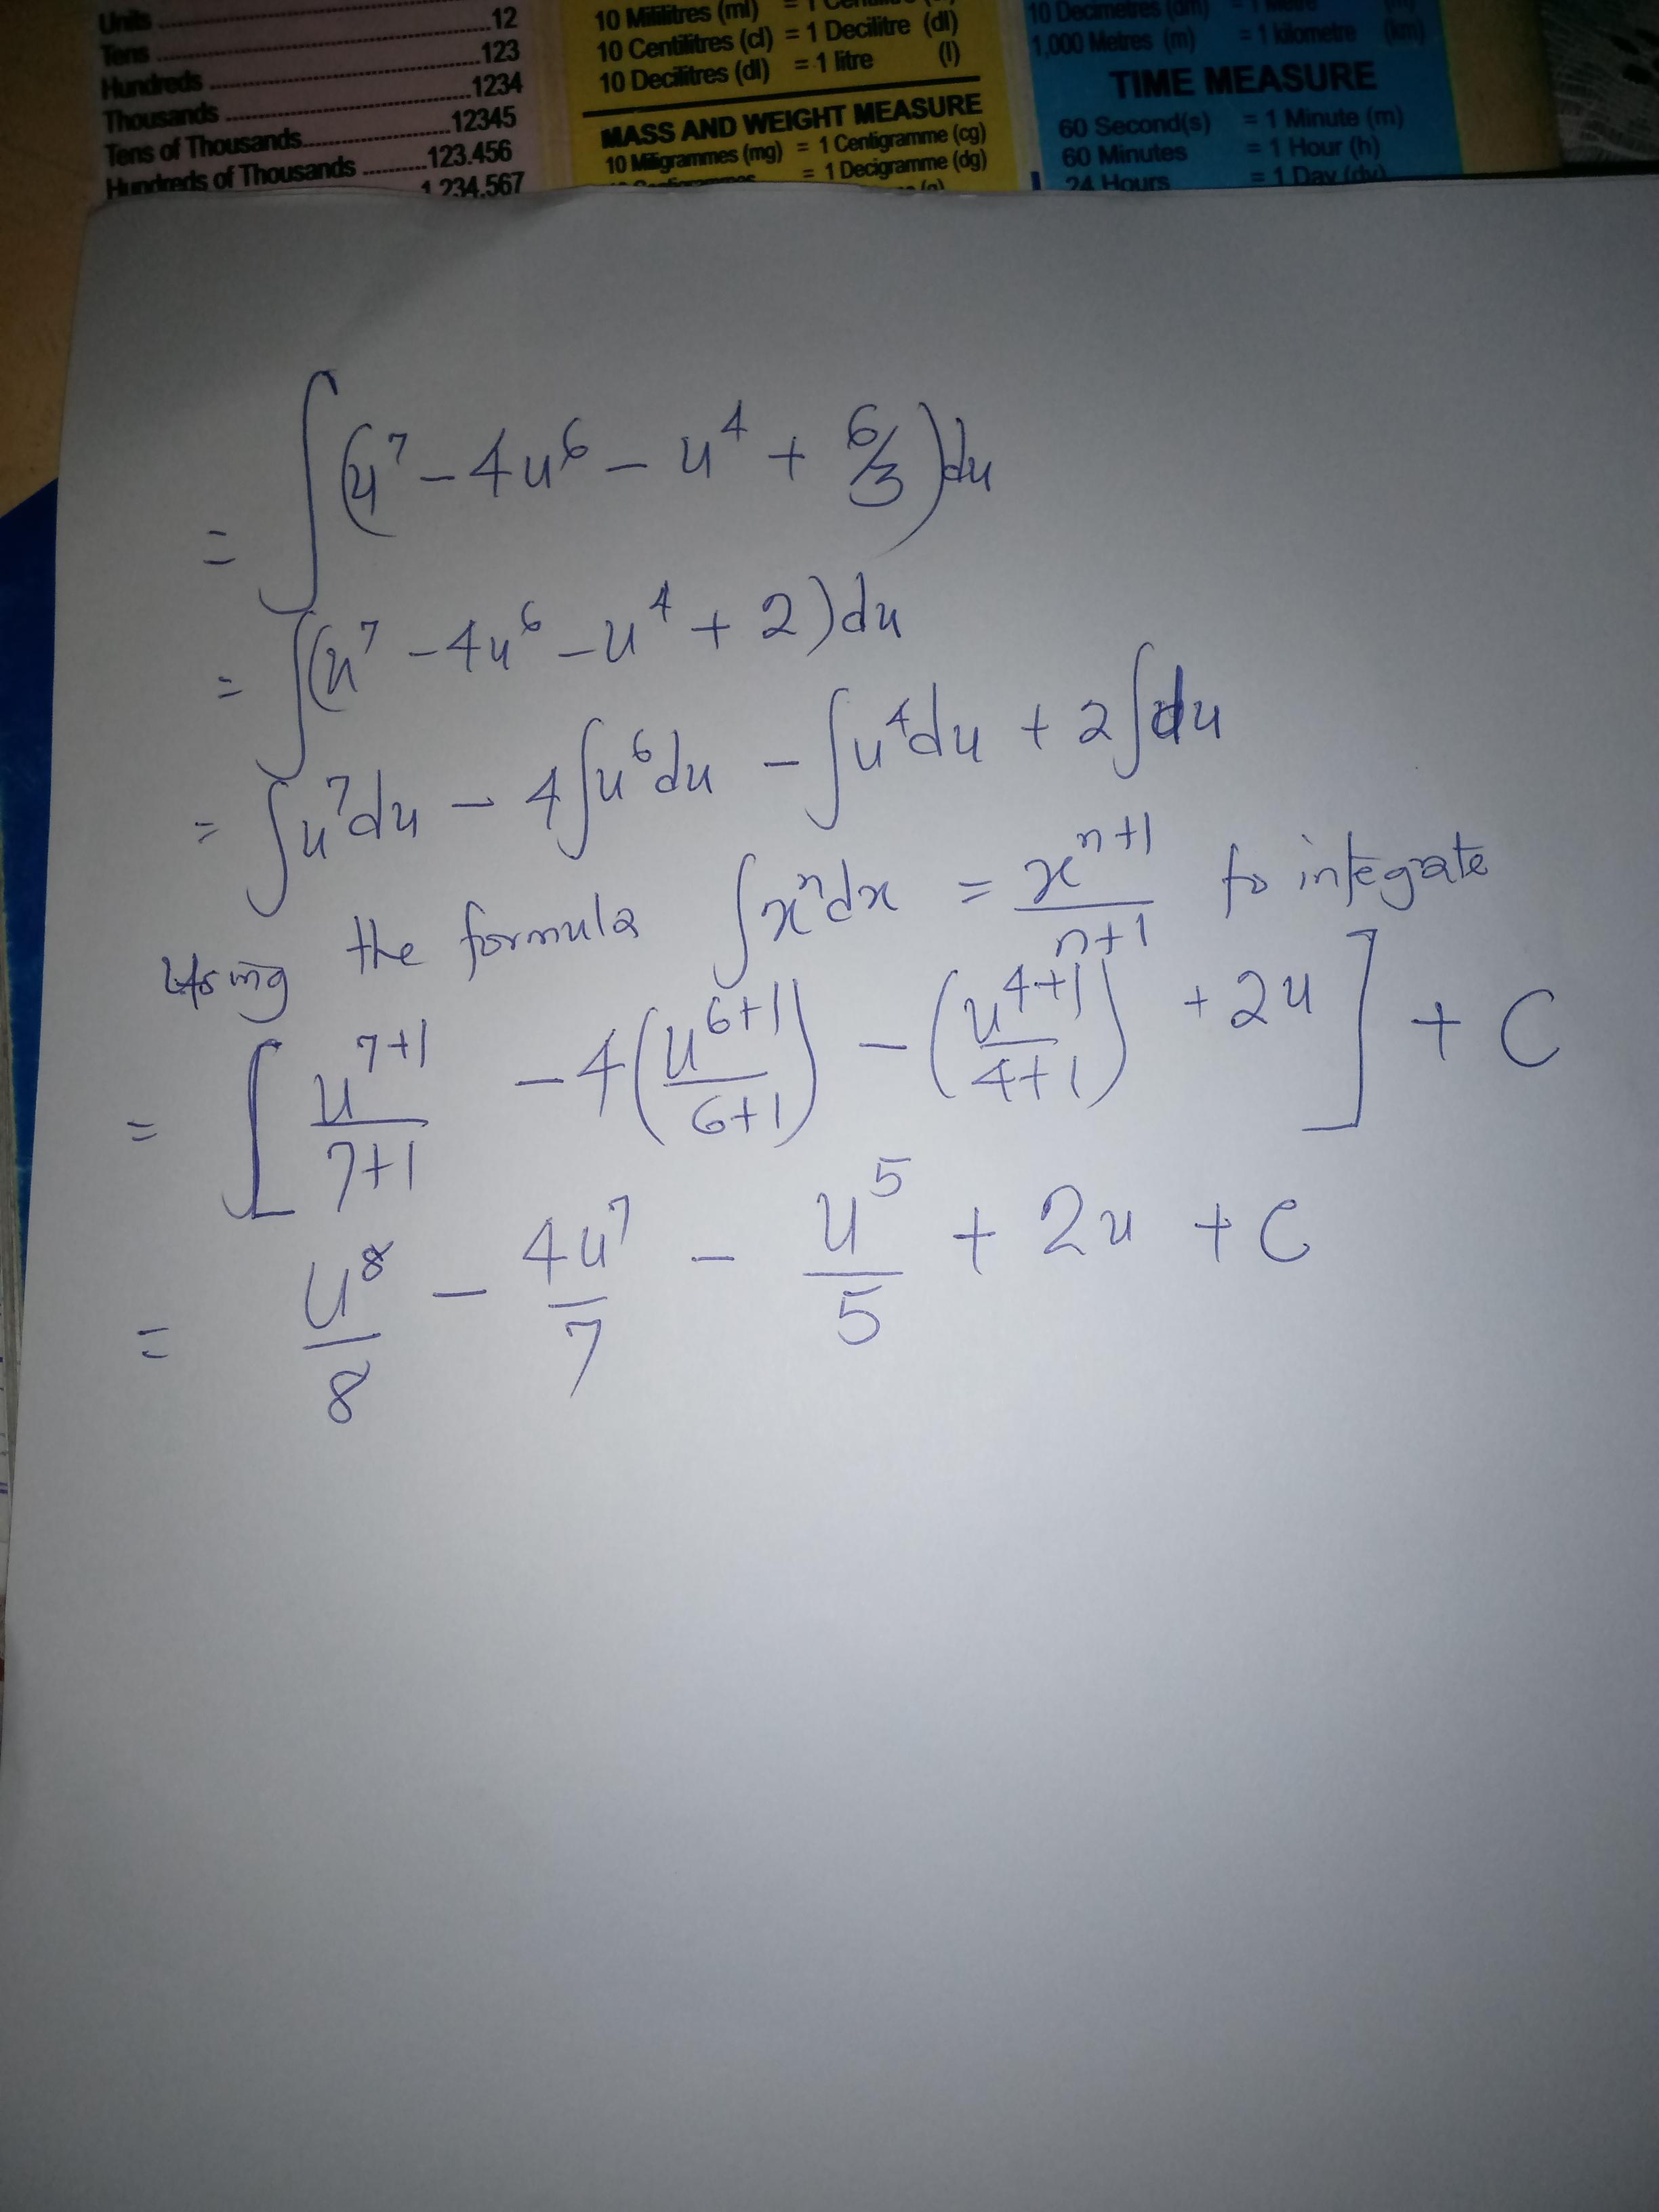 Units ........ 12
Tens ........ 123
Hundreds ........ 1234
Thousands ........ 12345
Tens of Thousands ........ 123.456
Hundreds of Thousands ........ 1 234,567
10 Millilitres (ml)
10 Centilitres (cl) = 1 Decilitre (dl)
10 Decilitres (dl) = 1 litre (l)
MASS AND WEIGHT MEASURE
10 Miligrammes (mg) = 1 Centigramme (cg)
= 1 Decigramme (dg)
10 Decimetres (dm)
1,000 Metres (m) = 1 kilometre (km)
TIME MEASURE
60 Second(s) = 1 Minute (m)
60 Minutes = 1 Hour (h)
24 Hours = 1 Day (dy)
= ∫(u^7 - 4u^6 - u^4 + 6/3)du
= ∫(u^7 - 4u^6 - u^4 + 2)du
= ∫u^7du - 4∫u^6du - ∫u^4du + 2∫du
Using the formula ∫x^n dx = x^(n+1)/(n+1) to integrate
= [u^(7+1)/(7+1) - 4(u^(6+1)/(6+1)) - (u^(4+1)/(4+1)) + 2u] + C
= u^8/8 - 4u^7/7 - u^5/5 + 2u + C